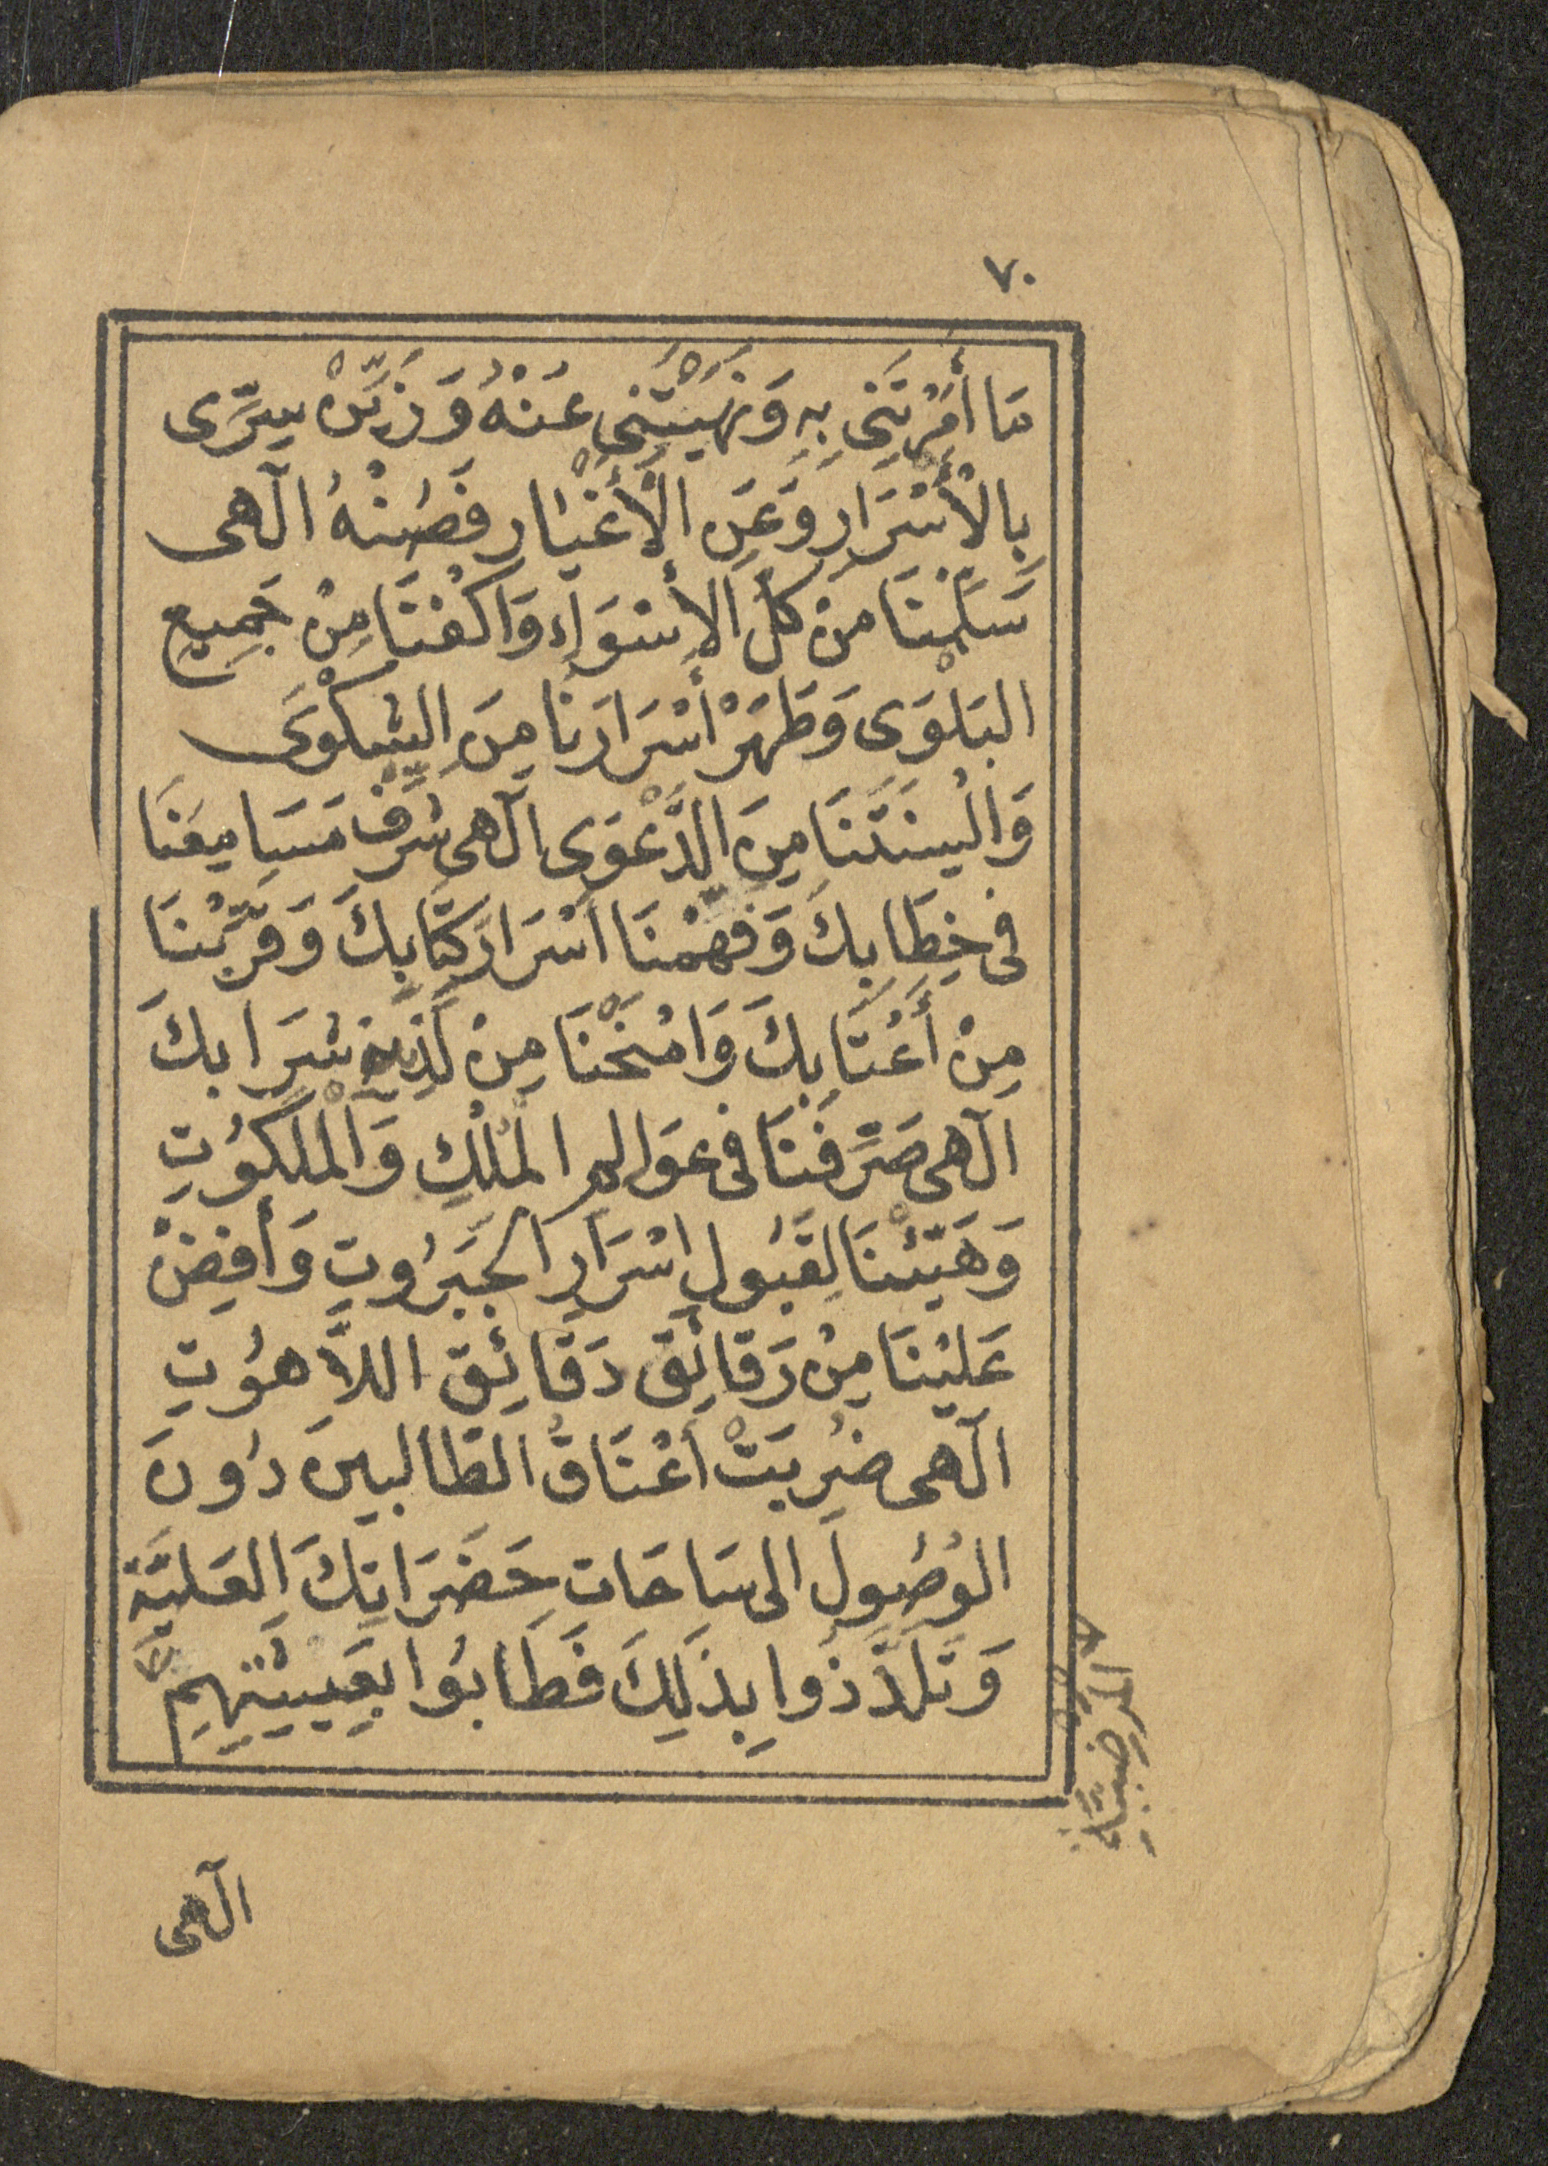 ٧٠
مَا أَمَرْتَنِى بِهِ وَنَهَيْتَنِى عَنْهُ وَزَيِّنْ سِرِّى
بِالْأَسْرَارِ وَعَنِ الْأَغْيَارِ فَصُنْهُ الٓهى
سَلِّمْنَا مِنْ كُلِّ الْأَسْوَاءِ وَاكْفِنَا مِنْ جَمِيعِ
الْبَلْوَى وَطَهِّرْ أَسْرَارَنَا مِنَ الشَّكْوَى
وَأَلْسِنَتَنَا مِنَ الدَّعْوَى الٓهى شَرِّفْ مَسَامِعَنَا
فِى خِطَابِكَ وَفَهِّمْنَا اَسْرَارَ كِتَابِكَ وَقَرِّبْنَا
مِنْ أَعْتَابِكَ وَامْنَحْنَا مِنْ لَذِيذِ شَرَابِكَ
الٓهى صَرِّفْنَا فى عَوَالِمِ الْمُلْكِ وَالْمَلَكُوتِ
وَهَيِّئْنَا لِقَبُولِ اسْرَارِ الْجَبَرُوتِ وَأَفِضْ
عَلَيْنَا مِنْ رَقَائِقِ دَقَائِقِ اللَّاهُوتِ
الٓهى ضُرِبَتْ أَعْنَاقُ الطَّالِبِينَ دُونَ
الْوُصُولِ الى سَاحَاتِ حَضَرَاتِكَ الْعَلِيَّةِ
وَتَلَذَّذُوا بِذَلِكَ فَطَابُوا بِعِيشَتِهِمِ
الٓهى